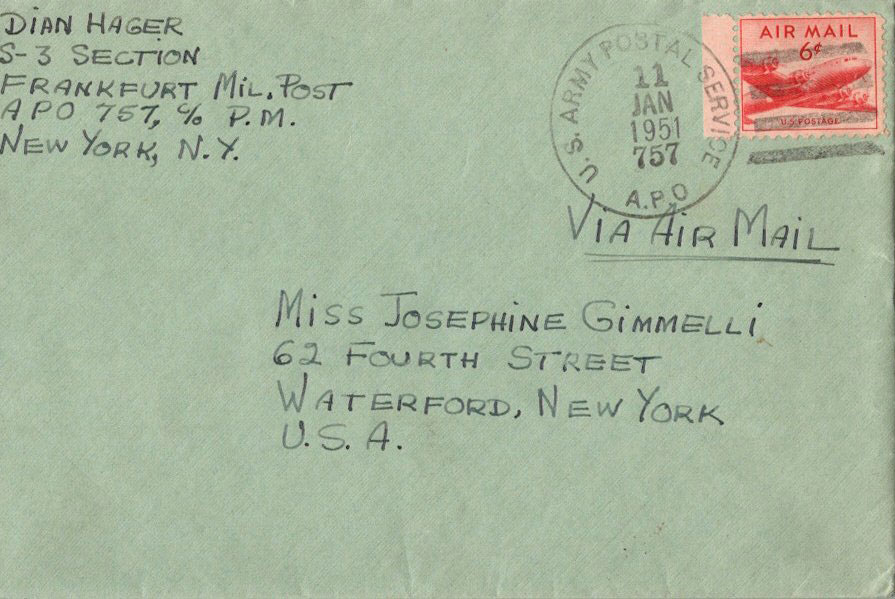 DIAN HAGER
S-3 SECTION
FRANKFURT MIL. POST
APO 757, c/o P.M.
NEW YORK, N.Y.
U.S. ARMY POSTAL SERVICE
11
JAN
1951
757
A.P.O
AIR MAIL
6¢
U.S. POSTAGE
VIA AIR MAIL
MISS JOSEPHINE GIMMELLI
62 FOURTH STREET
WATERFORD, NEW YORK
U.S.A.